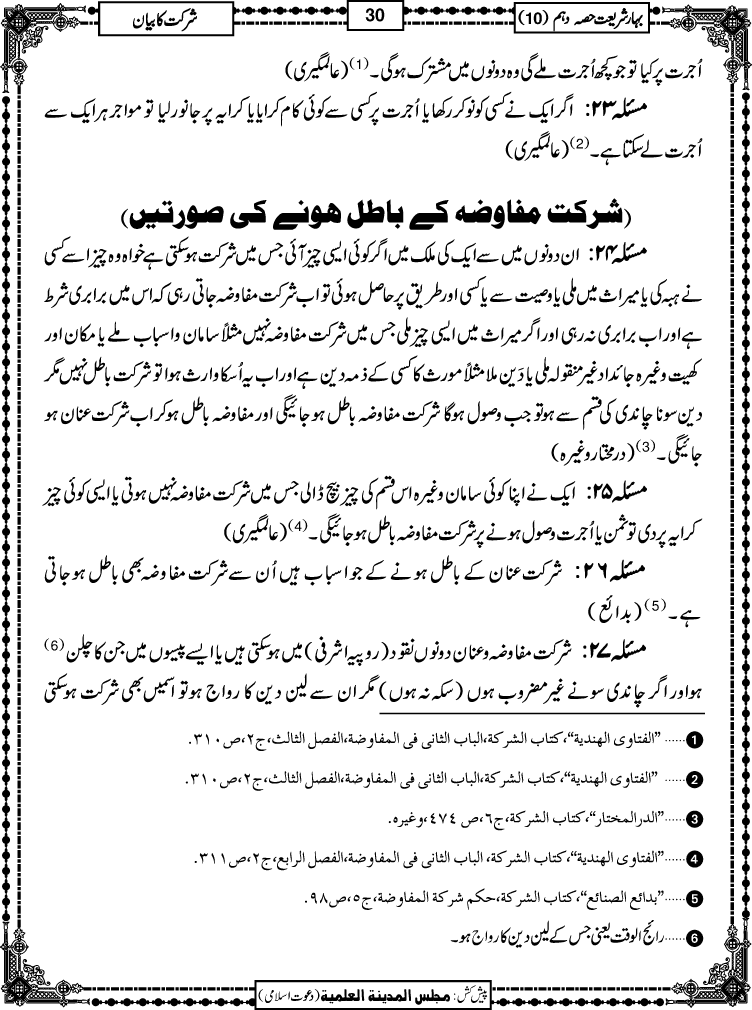 بہار شریعت حصہ دہم (10)
30
شرکت کا بیان
اُجرت پر کیا تو جو کچھ اُجرت ملے گی وہ دونوں میں مشترک ہوگی۔(1) (عالمگیری)
مسئلہ ۲۳: اگر ایک نے کسی کو نوکر رکھا یا اُجرت پر کسی سے کوئی کام کرایا یا کرایہ پر جانور لیا تو مواجر ہر ایک سے
اُجرت لے سکتا ہے۔(2) (عالمگیری)
(شرکت مفاوضہ کے باطل ہونے کی صورتیں)
مسئلہ ۲۴: ان دونوں میں سے ایک کی ملک میں اگر کوئی ایسی چیز آئی جس میں شرکت ہوسکتی ہے خواہ وہ چیز اسے کسی
نے ہبہ کی یا میراث میں ملی یا وصیت سے یا کسی اور طریق پر حاصل ہوئی تو اب شرکت مفاوضہ جاتی رہی کہ اس میں برابری شرط
ہے اور اب برابری نہ رہی اور اگر میراث میں ایسی چیز ملی جس میں شرکت مفاوضہ نہیں مثلاً سامان و اسباب ملے یا مکان اور
کھیت وغیرہ جائداد غیر منقولہ ملی یا دَین ملا مثلاً مورث کا کسی کے ذمہ دین ہے اور اب یہ اُسکا وارث ہوا تو شرکت باطل نہیں مگر
دین سونا چاندی کی قسم سے ہو تو جب وصول ہوگا شرکت مفاوضہ باطل ہو جائیگی اور مفاوضہ باطل ہوکر اب شرکت عنان ہو
جائیگی۔(3) (درمختار وغیرہ)
مسئلہ ۲۵: ایک نے اپنا کوئی سامان وغیرہ اس قسم کی چیز بیچ ڈالی جس میں شرکت مفاوضہ نہیں ہوتی یا ایسی کوئی چیز
کرایہ پر دی تو ثمن یا اُجرت وصول ہونے پر شرکت مفاوضہ باطل ہو جائیگی۔(4) (عالمگیری)
مسئلہ ۲۶: شرکت عنان کے باطل ہونے کے جو اسباب ہیں اُن سے شرکت مفاوضہ بھی باطل ہو جاتی
ہے۔(5) (بدائع)
مسئلہ ۲۷: شرکت مفاوضہ و عنان دونوں نقود (روپیہ اشرفی) میں ہوسکتی ہیں یا ایسے پیسوں میں جن کا چلن(6)
ہو اور اگر چاندی سونے غیر مضروب ہوں (سکہ نہ ہوں) مگر ان سے لین دین کا رواج ہو تو اسمیں بھی شرکت ہوسکتی
1 ...... "الفتاوى الهندية"، كتاب الشركة، الباب الثانى فى المفاوضة، الفصل الثالث، ج٢، ص٣١٠.
2 ...... "الفتاوى الهندية"، كتاب الشركة، الباب الثانى فى المفاوضة، الفصل الثالث، ج٢، ص٣١٠.
3 ...... "الدرالمختار"، كتاب الشركة، ج٦، ص٤٧٤، وغيره.
4 ...... "الفتاوى الهندية"، كتاب الشركة، الباب الثانى فى المفاوضة، الفصل الرابع، ج٢، ص٣١١.
5 ...... "بدائع الصنائع"، كتاب الشركة، حكم شركة المفاوضة، ج٥، ص٩٨.
6 ...... رائج الوقت یعنی جس کے لین دین کا رواج ہو۔
پیش کش: مجلس المدینة العلمية (دعوت اسلامی)